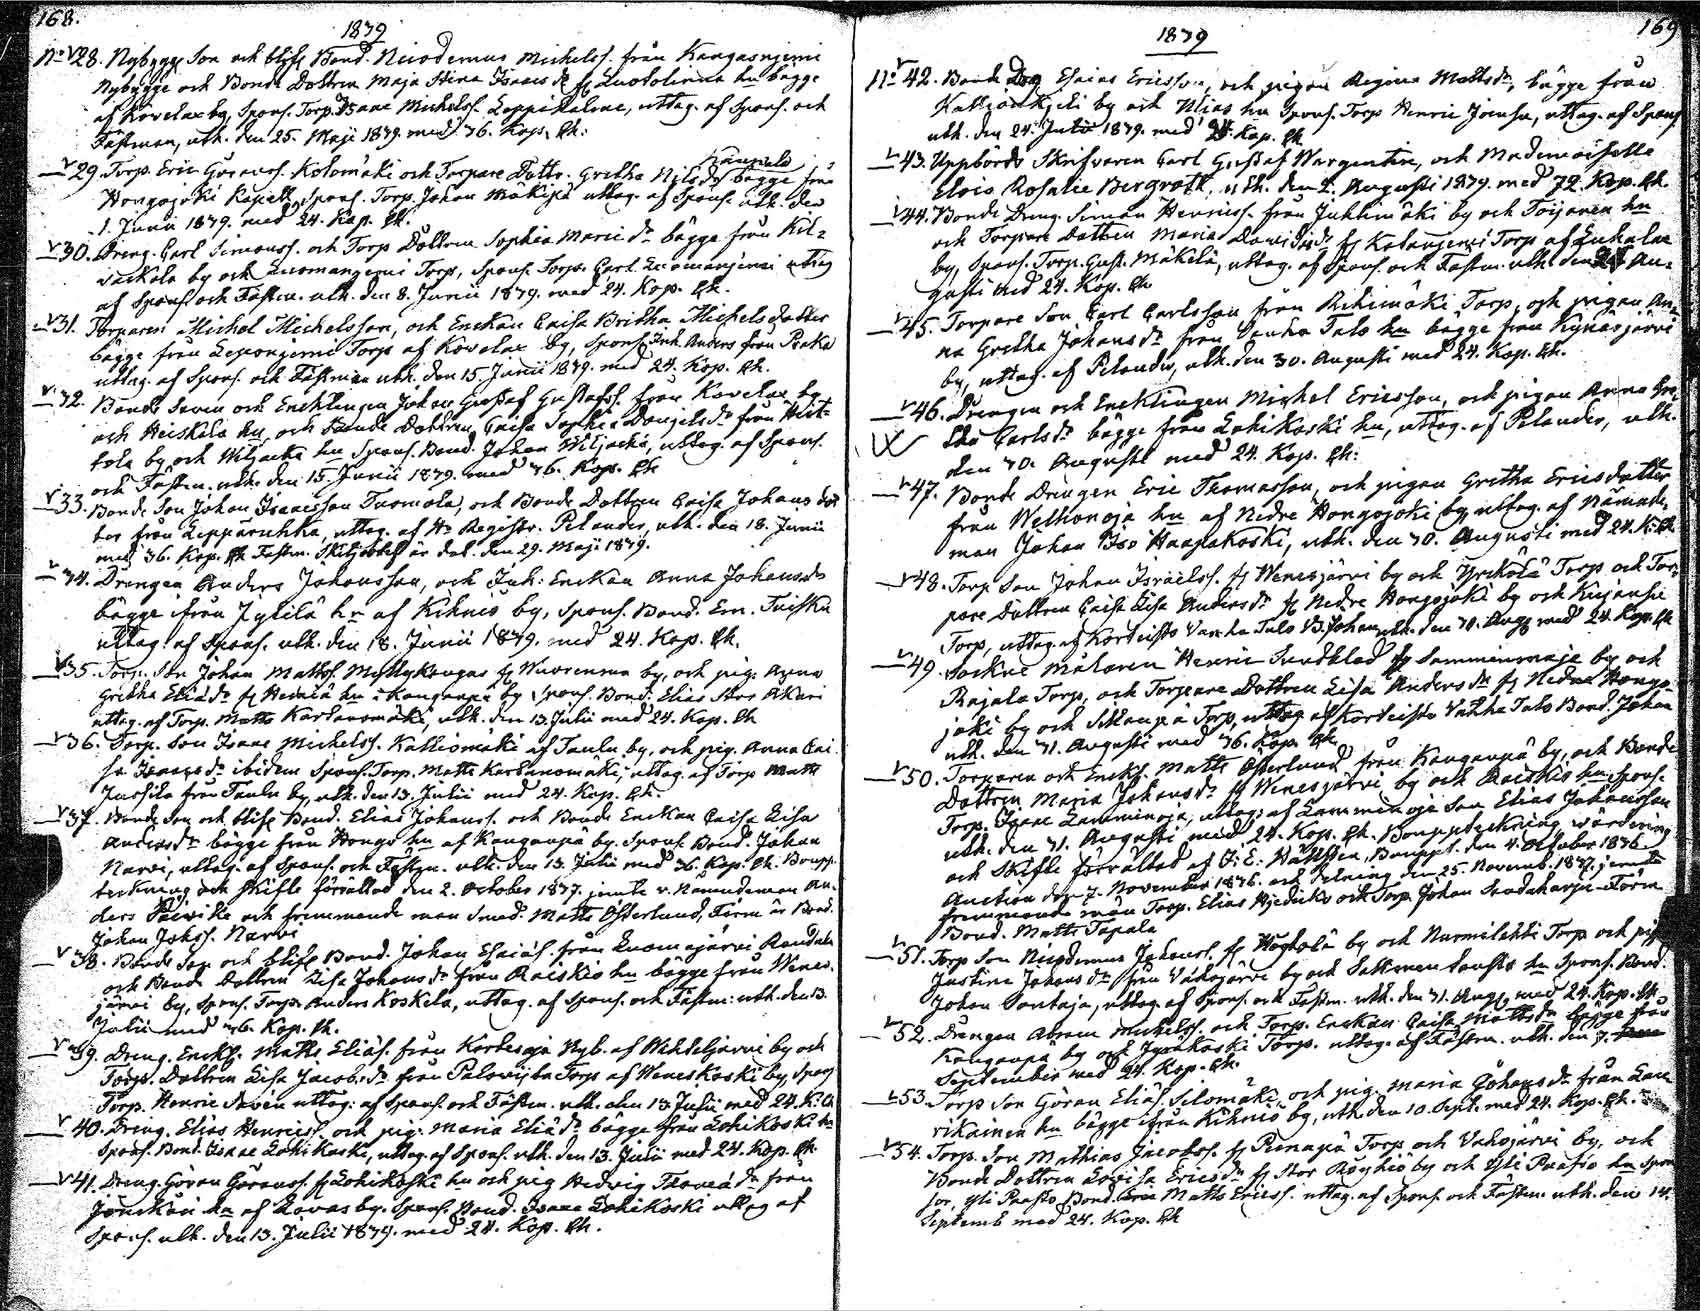 168.
1839
No 28. Nybygg. Son och blif. Bond. Nicodemus Michelss. från Kangasnjemi
Nybygge och Bonde Dottren Maja Stina Isaacs dr fr Luodolinna hn bägge
af Kovelax by, Spons. Torp. Isaac Michelss. Loppikaline, uttag. af Spons. och
Fästman, utk. den 25. Maji 1839. med 36. Kop. Ch:
29. Torp. Eric Göranss. Kolomäki och Torpare Dottr. Gretha Nilsdr bägge från
Hongojoki Kapell, Spons. Torp. Johan Mäkijä uttag. af Spons. utk. den
1. Junii 1839. med 24. Kop. Ch.
30. Dreng. Carl Simonss. och Torp Dottren Sophia Marie dr bägge från Kil=
vackola by och Luomangemi Torp, Spons. Torp. Carl Luomanjemi uttag
af Spons. och Fästm. utk. den 8. Junii 1839. med 24. Kop. Ch.
31. Torparen Michel Michelsson, och Enckan Caisa Britha Michels dotter
bägge från Leponjemi Torp af Kovelax by, Spons. Inh. Anders från Penka
uttag. af Spons. och Fästman utk. den 15. Junii 1839. med 24. Kop. Ch.
32. Bonde Sonen och Encklingen Johan Gustaf Gustafss. från Kovelax by
och Heiskala hn, och Bonde Dottren Caisa Sophia Daniels dr från
tola by och Wiljacka hn Spons. Bond. Johan Wiljacka, uttag. af Spons.
och Fästm. utk. den 15. Junii 1839. med 36. Kop. Ch
33. Bonde Son Johan Isaacsson Tuomola, och Bonde Dottren Caisa Johans dot
ter från Leppäruhka, uttag. af Hr Registr. Pelander, utk. den 18. Junii
med 36. Kop. Ch Fästm. Skiljobref är dat. den 29. Maji 1839.
34. Drengen Anders Johansson, och Inh: Enckan Anna Johansdr
bägge ifrån Jylilä hn af Kihniö by, Spons. Bond. Em. Tuisku
uttag. af Spons. utk. den 18. Junii 1839. med 24. Kop. Ch.
35. Torp. Son Johan Mattss. Myllykangas fr Wuorenmaa by, och pig. Anna
Gretha Eliä dr fr Heinilä hn i Kangaspä by Spons. Bond. Elias Stor Akari
uttag. af Torp. Matts Kartanomäki, utk. den 13. Julii med 24. Kop. Ch
36. Torp. Son Isaac Michelss. Kalliomäki af Taulu by, och pig. Anna Cai
sa Isaacs dr ibidem Spons. Torp. Matts Kartanomäki, uttag. af Torp Matts
Jussila från Taulu by, utk. den 13. Julii med 24. Kop. Ch.
37. Bonde Son och blif. Bond. Elias Johanss. och Bonde Enckan Caisa Lisa
Anders dr bägge från Hongo hn af Kangaspä by, Spons. Bond. Johan
Narvi, uttag. af Spons. och Fästm. utk. den 13. Julii med 36. Kop. Ch. Boupp-
teckning och skifte förrättad den 2. October 1837. jemte v. Nämndeman An-
ders och fremmande man Smed. Matts Österlund, Förm är Bond.
Johan Johss. Narvi
38. Bonde Son och blif. Bond. Johan Esaiäss. från Luomajärvi
och Bonde Dottren Lisa Johans dr från Raiskio hn bägge från Wenes-
järvi by, Spons. Torp. Anders Koskela, uttag. af Spons. och Fästm. utk. den 13.
Julii med 36. Kop. Ch.
39. Dreng. Enckl. Matts Eliäs. från Kortesoja Nyb. af by och
Torp. Dottren Lisa Jacobs dr från Palovijta Torp af Weneskoski by, Spons
Torp. Henric uttag: af Spons. och Fästm. utk. den 13 Julii med 24. K. Ch
40. Dreng. Elias Henricss. och pig. Maria Eliä dr bägge från Lohikoski hn
Spons. Bond. Isaac Lohikoski, uttag. af Spons. utk. den 13. Julii med 24. Kop. Ch
41. Dreng. Göran Göranss. fr Lohikoski hn och pig Hedvig dr från
hn af Kovas by. Spons. Bond. Isaac Lohikoski uttag af
Spons. utk. den 13. Julii 1839. med 24. Kop. Ch.
169
1839
No 42. Bonde Drg Esaias Ericsson, och pigan Regina Mattsdr, bägge från
by och hn Spons. Torp Henric uttag. af Spons
utk. den 24. Julii 1839. med 24. Kop. Ch
43. Uppbörds Skrifvaren Carl Gustaf Wargentin, och Mademoiselle
Lovis Rosalie Bergroth, utk. den 2. Augusti 1839. med 72. Kop. Ch.
44. Bonde Dreng. Simon Henricss. från Juhtimäki by och Toijanen hn
och Torpare Dottren Maria Davidsdr fr Kalanjemi Torp af Luhalax
by, Spons. Torp. Gust. Mäkelä, uttag. af Spons. och Fästm. utk. den Au-
gusti med 24. Kop. Ch
45. Torpare Son Carl Carlsson från Rihimäki Torp, och pigan An-
na Gretha Johans dr från Vanha Talo hn bägge från Kyrösjärvi
by, uttag. af Pelander, utk. den 30. Augusti med 24. Kop. Ch.
46. Drengen och Encklingen Michel Ericsson, och pigan Anna Gre-
tha Carls dr bägge från Lohikoski hn, uttag. af Pelander, utk.
den 30. Augusti med 24. Kop. Ch:
47. Bonde Drengen Eric Thomasson, och pigan Gretha Erics dotter
från Welhonoja hn af Nedre Hongojoki by, uttag. af Nämnde-
man Johan Iso Haapakoski, utk. den 30. Augusti med 24. K. Ch
48. Torp Son Johan Israelss. fr Wenesjärvi by och Yrckölä Torp och Tor-
pare Dottren Caisa Lisa Anders dr fr Nedre Hongojoki by och Kujansu
Torp, uttag. af Kordeisto Vanha Talo B. Johan utk. den 30. Aug. med 24. Kop. Ch
49. Sockne Målaren Henric Sundblad fr Samminmaja by och
Rajala Torp, och Torpare Dottren Lisa Anders dr fr Nedre Hongo-
joki by och Torp, uttag. af Kordeisto Vanha Talo Bond. Johan
utk. den 31. Augusti med 36. Kop. Ch
50. Torparen och Enckl. Matts Österlund från Kangaspä by, och Bonde
Dottren Maria Johans dr fr Wenesjärvi by och Raiskio hn Spons.
Torp. Isaac Lamminoja, uttag. af Lamminoja Son Elias Johansson
utk. den 31. Augusti med 24. Kop. Ch. Bouppteckning, värdering
och Skifte förrättad af Bouppt. den 4. October 1836.
Auction den 7. November 1836. och Delning den 25. Novemb. 1837. jemte
fremmande män Torp. Elias och Torp. Johan Sandaharju Förm
Bond. Matts Tapala
51. Torp Son Nicodemus Johanss. fr by och Nurmilahti Torp och pig.
Justina Johans dr från Vahojärvi by och hn Spons. Bond.
Johan Sontaja, uttag. af Spons. och Fästm. utk. den 31. Aug. med 24. Kop. Ch.
52. Drengen Abram Michelss. och Torp. Enckan Caisa Matts dr bägge från
Kangaspä by och Jyräkoski Torp. uttag. af Fästm. utk. den 7.
September med 24. Kop. Ch.
53. Torp Son Göran Eliäs. Silomäki, och pig. Maria Johans dr från
rikainen hn bägge ifrån Kihniö by, utk. den 10. Sept. med 24. Kop. Ch.
54. Torp. Son Mathias Jacobss. fr Punapä Torp och Vahojärvi by, och
Bonde Dottren Lovisa Erics dr fr Stor Röyhiö by och Yli Paasto hn Spon
sor Yli Paasto Bond. Matts Ericss. uttag. af Spons. och Fästm. utk. den 14.
Septemb med 24. Kop. Ch